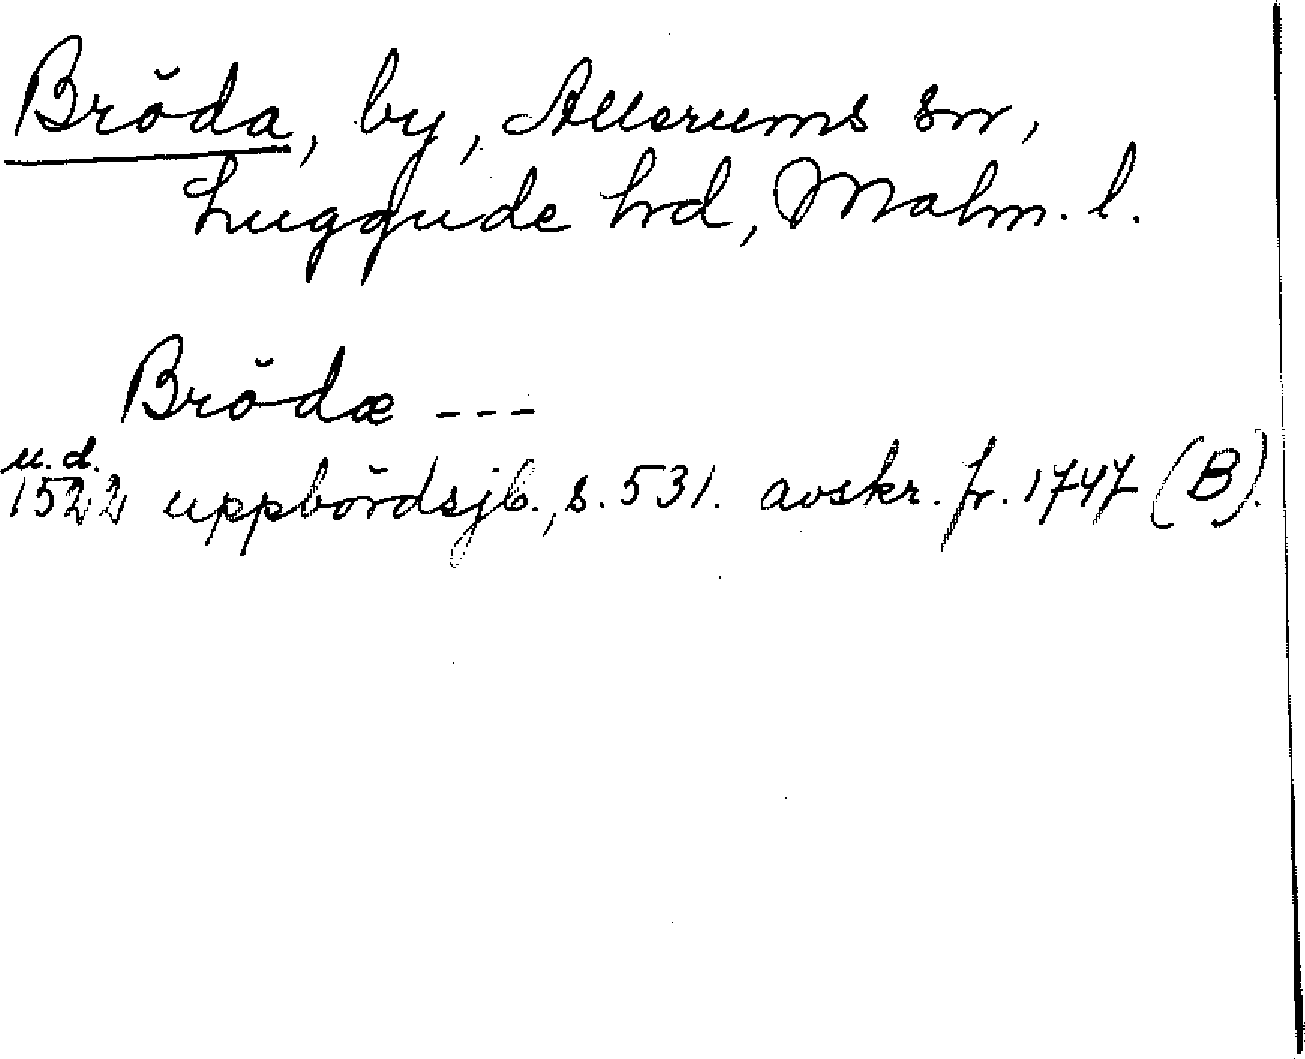 Bröda, by, Allerums sn,
Luggude hrd, Malm. l.
Brödæ ---
u.d.
1522 uppbördsjb., s. 531. avskr. fr. 1747 (B).